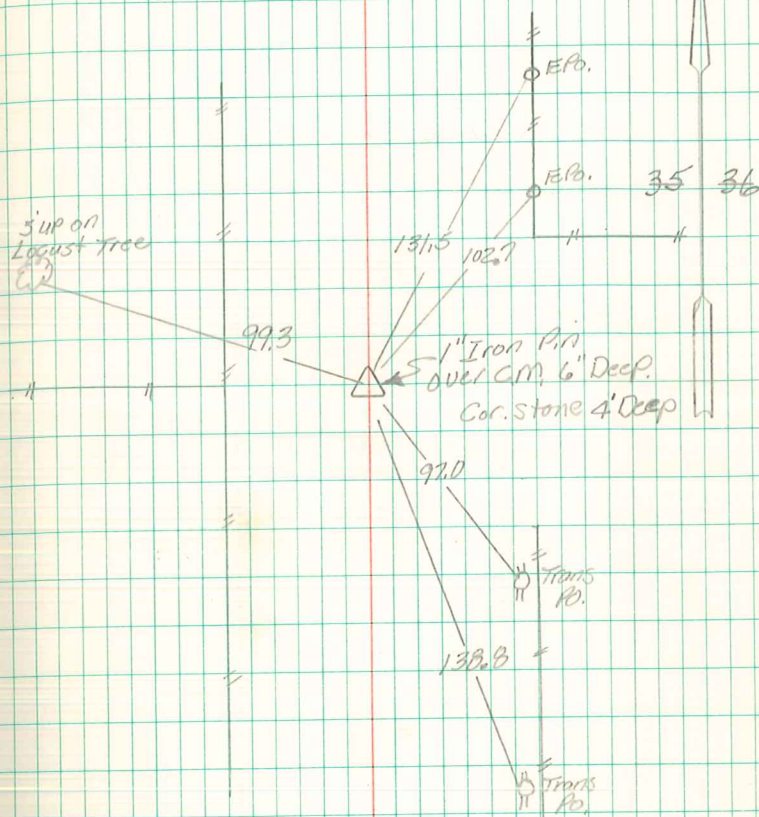 EPO.
EPO.
35 36
5' up on
Locust Tree
131.5
102.7
99.3
1" Iron Pin
over C.M. 6" Deep.
Cor. Stone 4' Deep
97.0
Trans
PO.
138.8
Trans
PO.